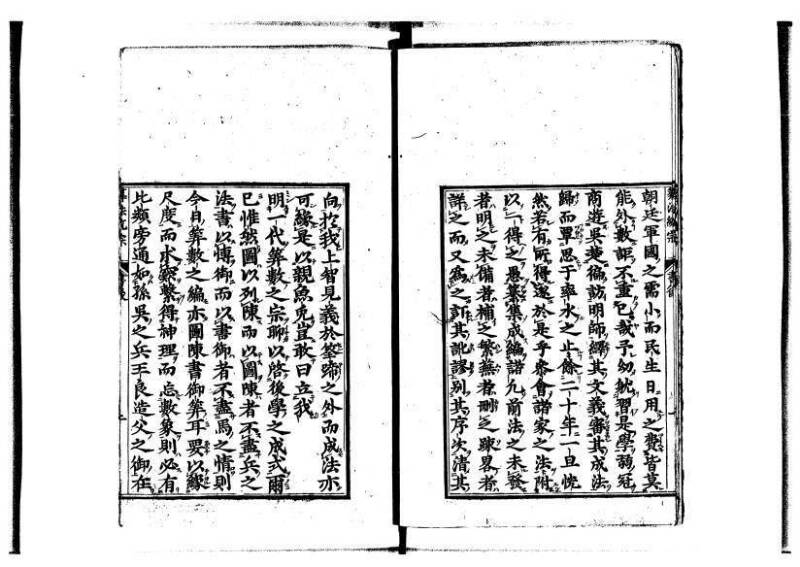 算法統宗
朝廷軍國之需小而民生日用之費皆莫
能外數詎不重已哉予幼耽習是學弱冠
商遊吳楚徧訪明師繹其文義審其成法
歸而覃思于率水之上餘二十年一旦恍
然若有所得遂於是乎參會諸家之法附
以一得之愚纂集成編諸凡前法之未發
者明之未備者補之繁蕪者刪之踈畧者
詳之而又為之訂其訛謬別其序次清其
向於我上智見義於筌蹄之外而成法亦
可緣是以親魚兔豈敢曰立我
明一代算數之宗聊以啓後學之成式爾
已惟然圖以列陳而以圖陳者不盡兵之
法書以博御而以書御者不盡馬之情則
今日算數之編亦圖陳書御算耳要以緣
尺度而求得神理而忘數象則必有
比類旁通如孫吳之兵王良造父之御在